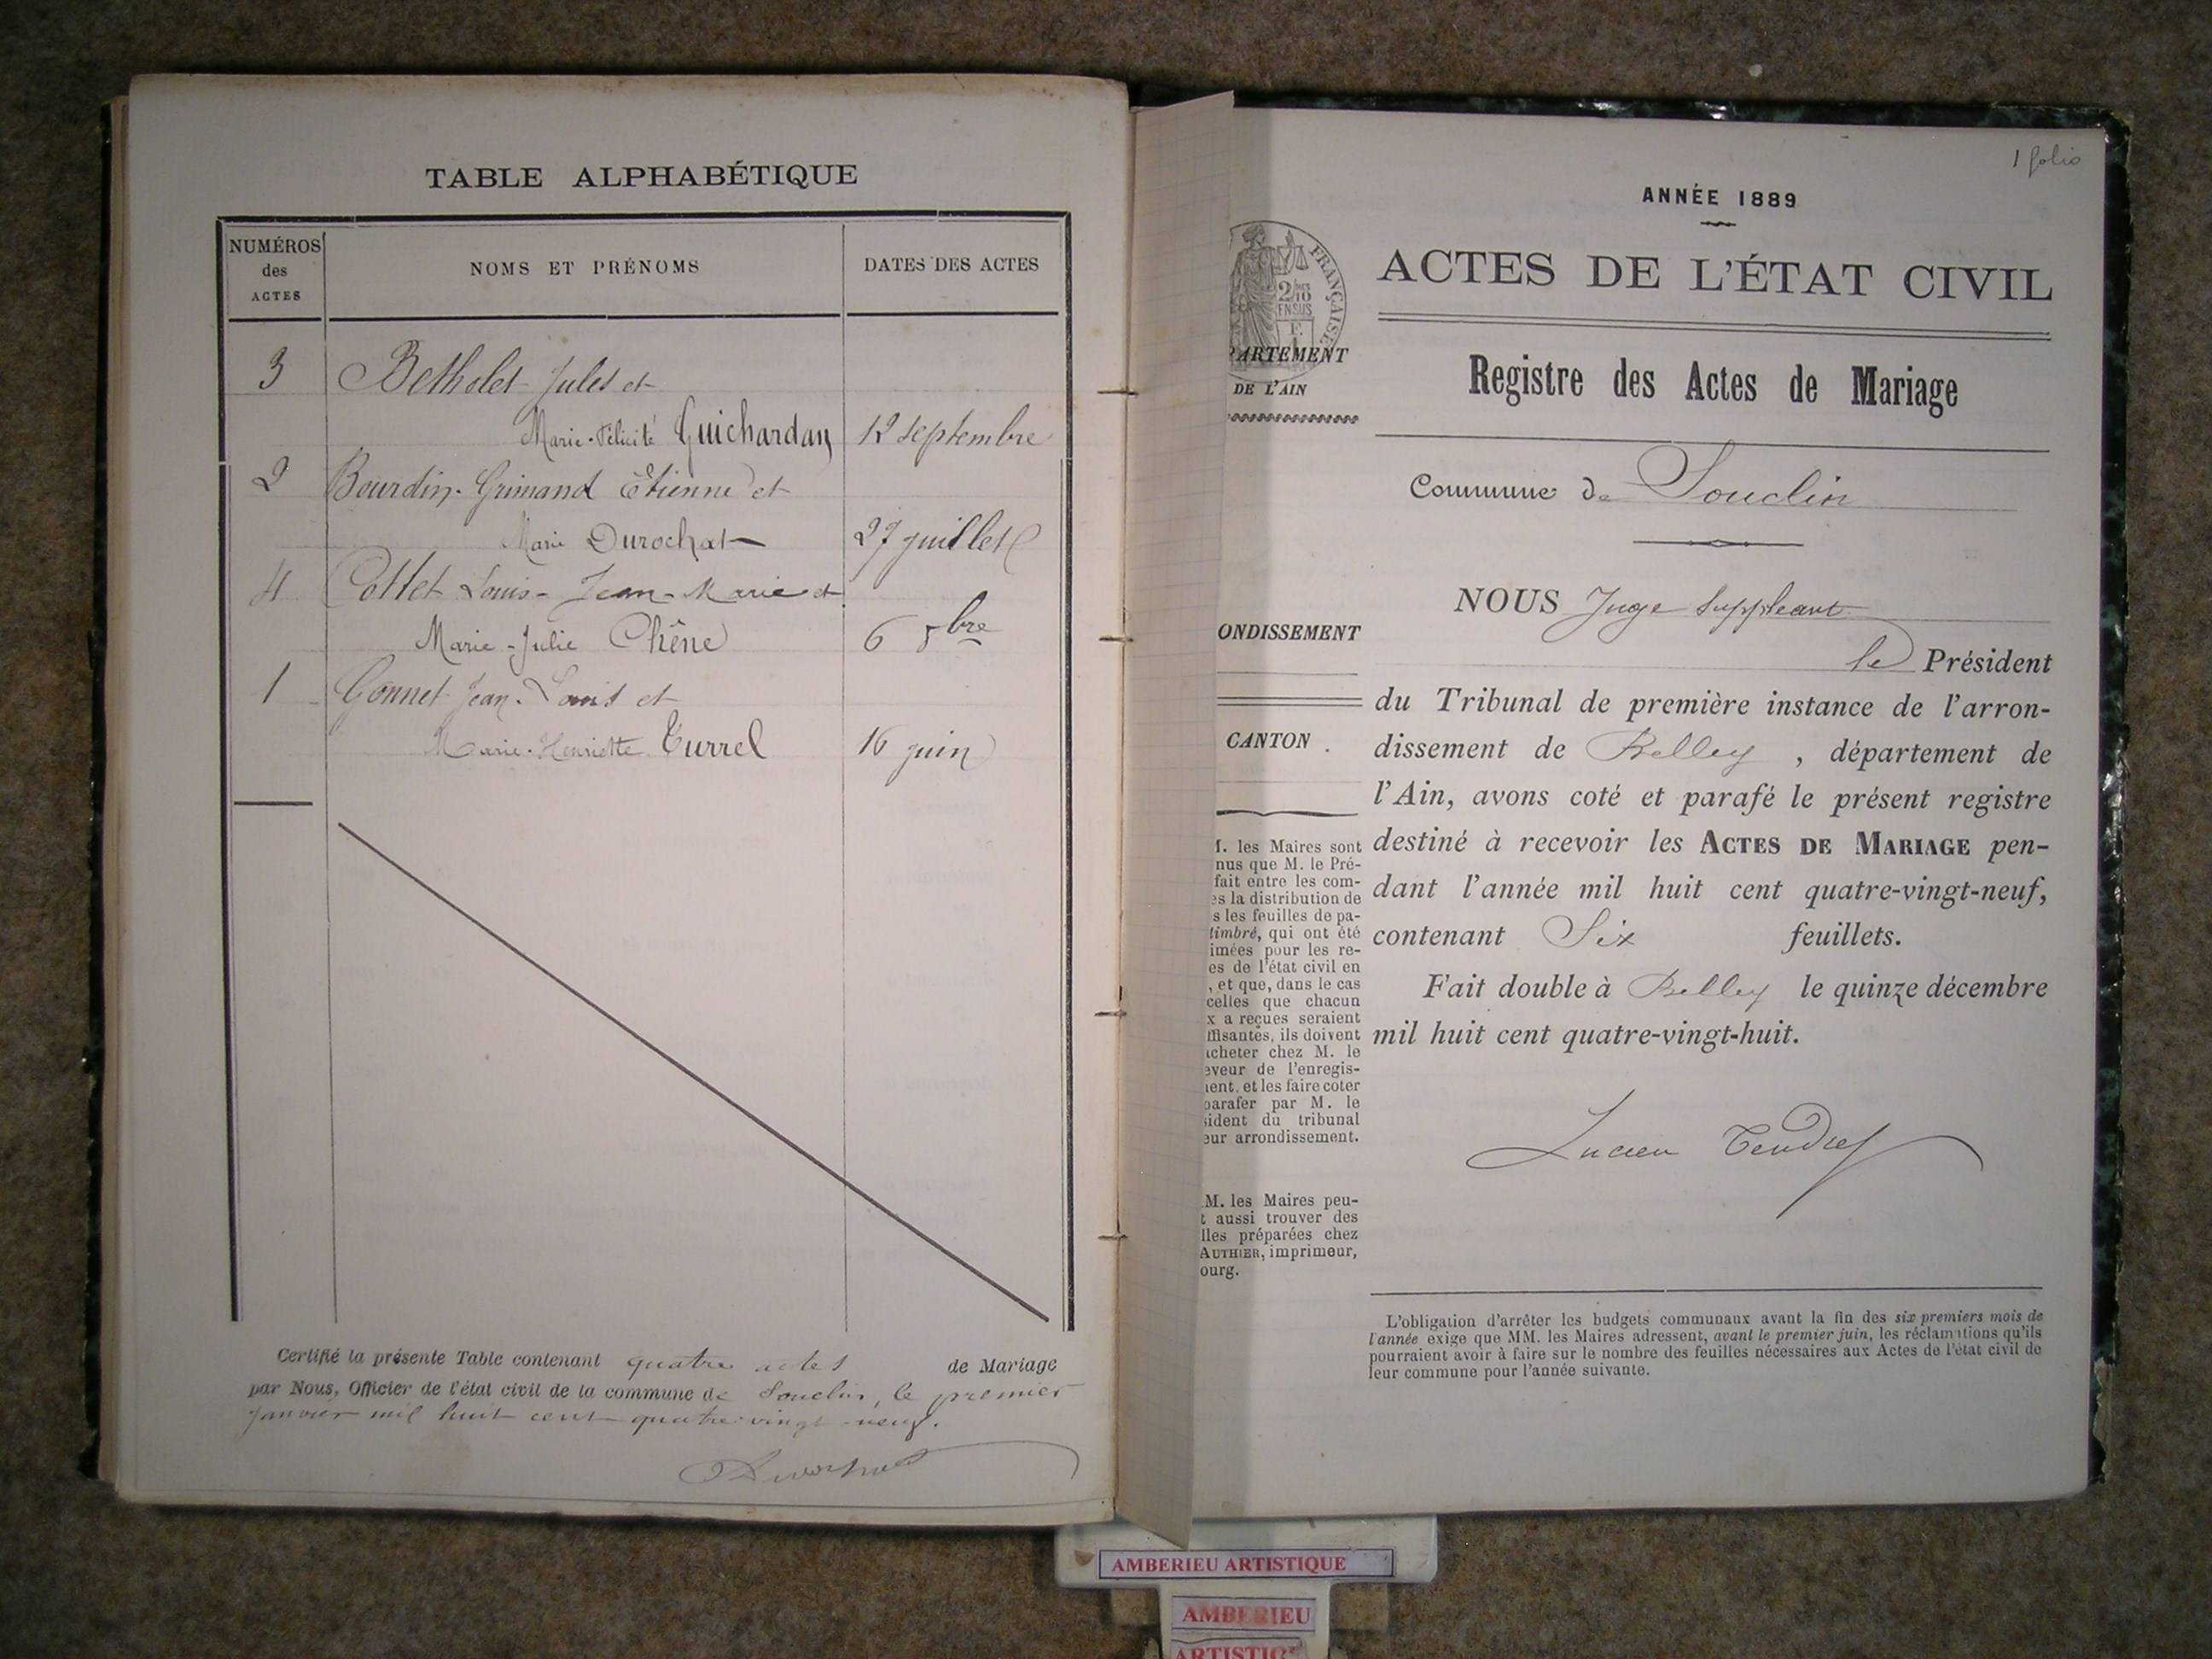 TABLE ALPHABÉTIQUE
NUMÉROS
des
ACTES
NOMS ET PRÉNOMS
DATES DES ACTES
3 Betholet Jules et
Marie-Félicité Guichardan 12 septembre
2 Bourdin-Grimand Etienne et
Marie Durochat 27 juillet
4 Cottet Louis-Jean-Marie et
Marie-Julie Chêne 6 8bre
1 Gonnet Jean-Louis et
Marie-Henriette Turrel 16 juin
Certifié la présente Table contenant quatre actes de Mariage
par Nous, Officier de l'état civil de la commune de Souclin, le premier
janvier mil huit cent quatre-vingt-neuf.
1 folio
ANNÉE 1889
ACTES DE L'ÉTAT CIVIL
Registre des Actes de Mariage
Commune de Souclin
NOUS Juge Suppléant
le Président
du Tribunal de première instance de l'arron-
dissement de Belley, département de
l'Ain, avons coté et parafé le présent registre
destiné à recevoir les ACTES DE MARIAGE pen-
dant l'année mil huit cent quatre-vingt-neuf,
contenant Six feuillets.
Fait double à Belley le quinze décembre
mil huit cent quatre-vingt-huit.
Lucien Tendret
L'obligation d'arrêter les budgets communaux avant la fin des six premiers mois de
l'année exige que MM. les Maires adressent, avant le premier juin, les réclamations qu'ils
pourraient avoir à faire sur le nombre des feuilles nécessaires aux Actes de l'état civil de
leur commune pour l'année suivante.
FRANÇAISE
2/10
EN SUS
PARTEMENT
DE L'AIN
ONDISSEMENT
CANTON
M. les Maires sont
nus que M. le Pré-
fait entre les com-
es la distribution de
s les feuilles de pa-
timbré, qui ont été
imées pour les re-
es de l'état civil en
, et que, dans le cas
celles que chacun
x a reçues seraient
ffisantes, ils doivent
acheter chez M. le
eveur de l'enregis-
ment, et les faire coter
parafer par M. le
sident du tribunal
eur arrondissement.
M. les Maires peu-
t aussi trouver des
lles préparées chez
AUTHIER, imprimeur,
ourg.
AMBERIEU ARTISTIQUE
AMBERIEU
ARTISTIQ